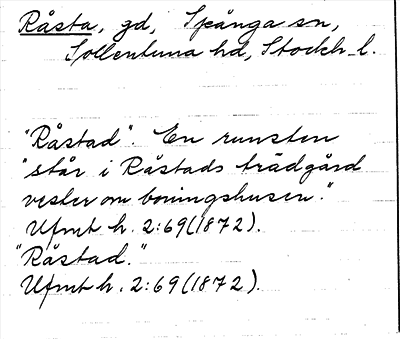 Råsta, gd, Spånga sn,
Sollentuna hd, Stockh. l.
"Råstad". En runsten
"står i Råstads trädgård
vester om boningshusen."
Ufmt h. 2:69 (1872).
"Råstad."
Ufmt h. 2:69 (1872).